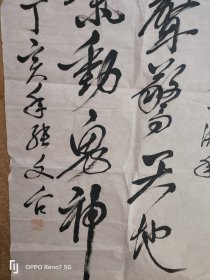 聲驚天地
動鬼神
丁亥年張文台
OPPO Reno7 5G